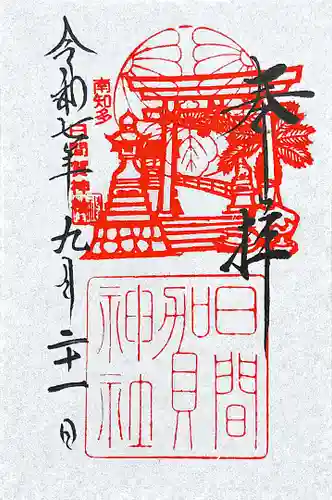 奉拝
南知多
日間賀神社
日間賀神社
令和七年九月二十一日